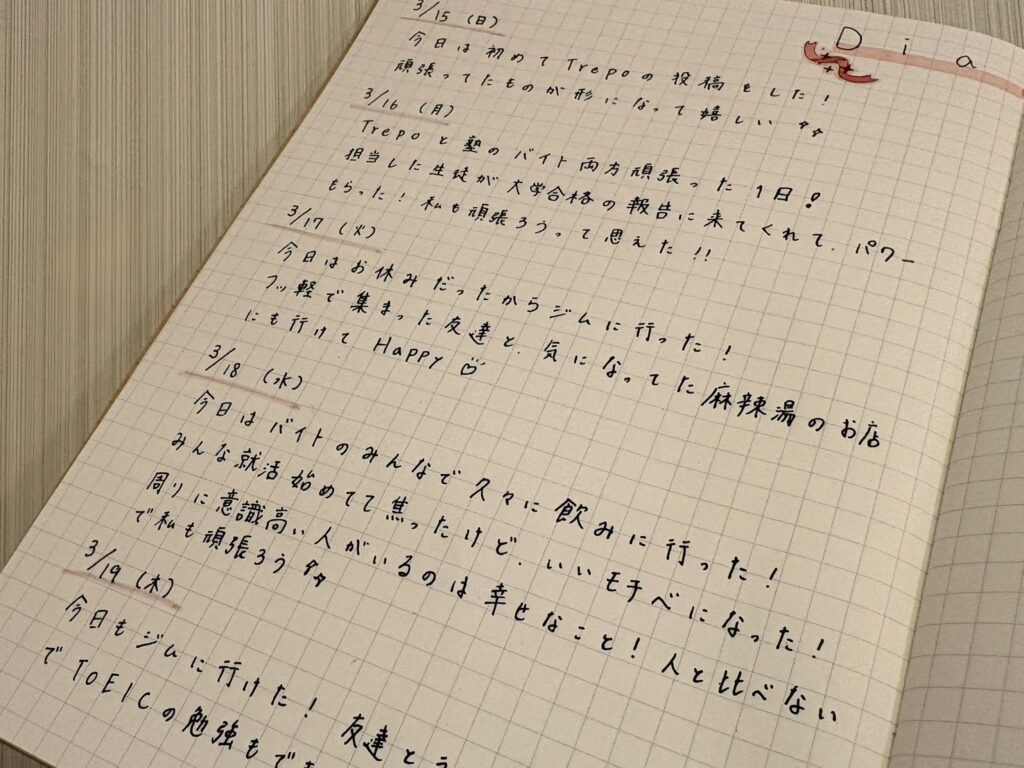 Dia
3/15(日)
今日は初めてTrepoの投稿をした!
頑張ってたものが形になって嬉しい
3/16(月)
Trepoと塾のバイト両方頑張った1日!
担当した生徒が大学合格の報告に来てくれて、パワー
もらった!私も頑張ろうって思えた!!
3/17(火)
今日はお休みだったからジムに行った!
フッ軽で集まった友達と、気になってた麻辣湯のお店
にも行けてHappy
3/18(水)
今日はバイトのみんなで久々に飲みに行った!
みんな就活始めてて焦ったけど、いいモチベになった!
周りに意識高い人がいるのは幸せなこと!人と比べない
で私も頑張ろう
3/19(木)
今日もジムに行けた!友達と
でTOEICの勉強もで